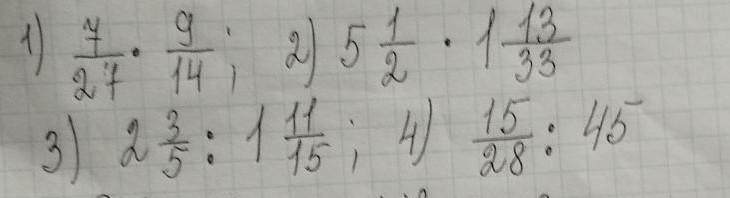 1) 7/27 · 9/14; 2) 5 1/2 · 1 13/33
3) 2 3/5 : 1 11/15; 4) 15/28 : 45